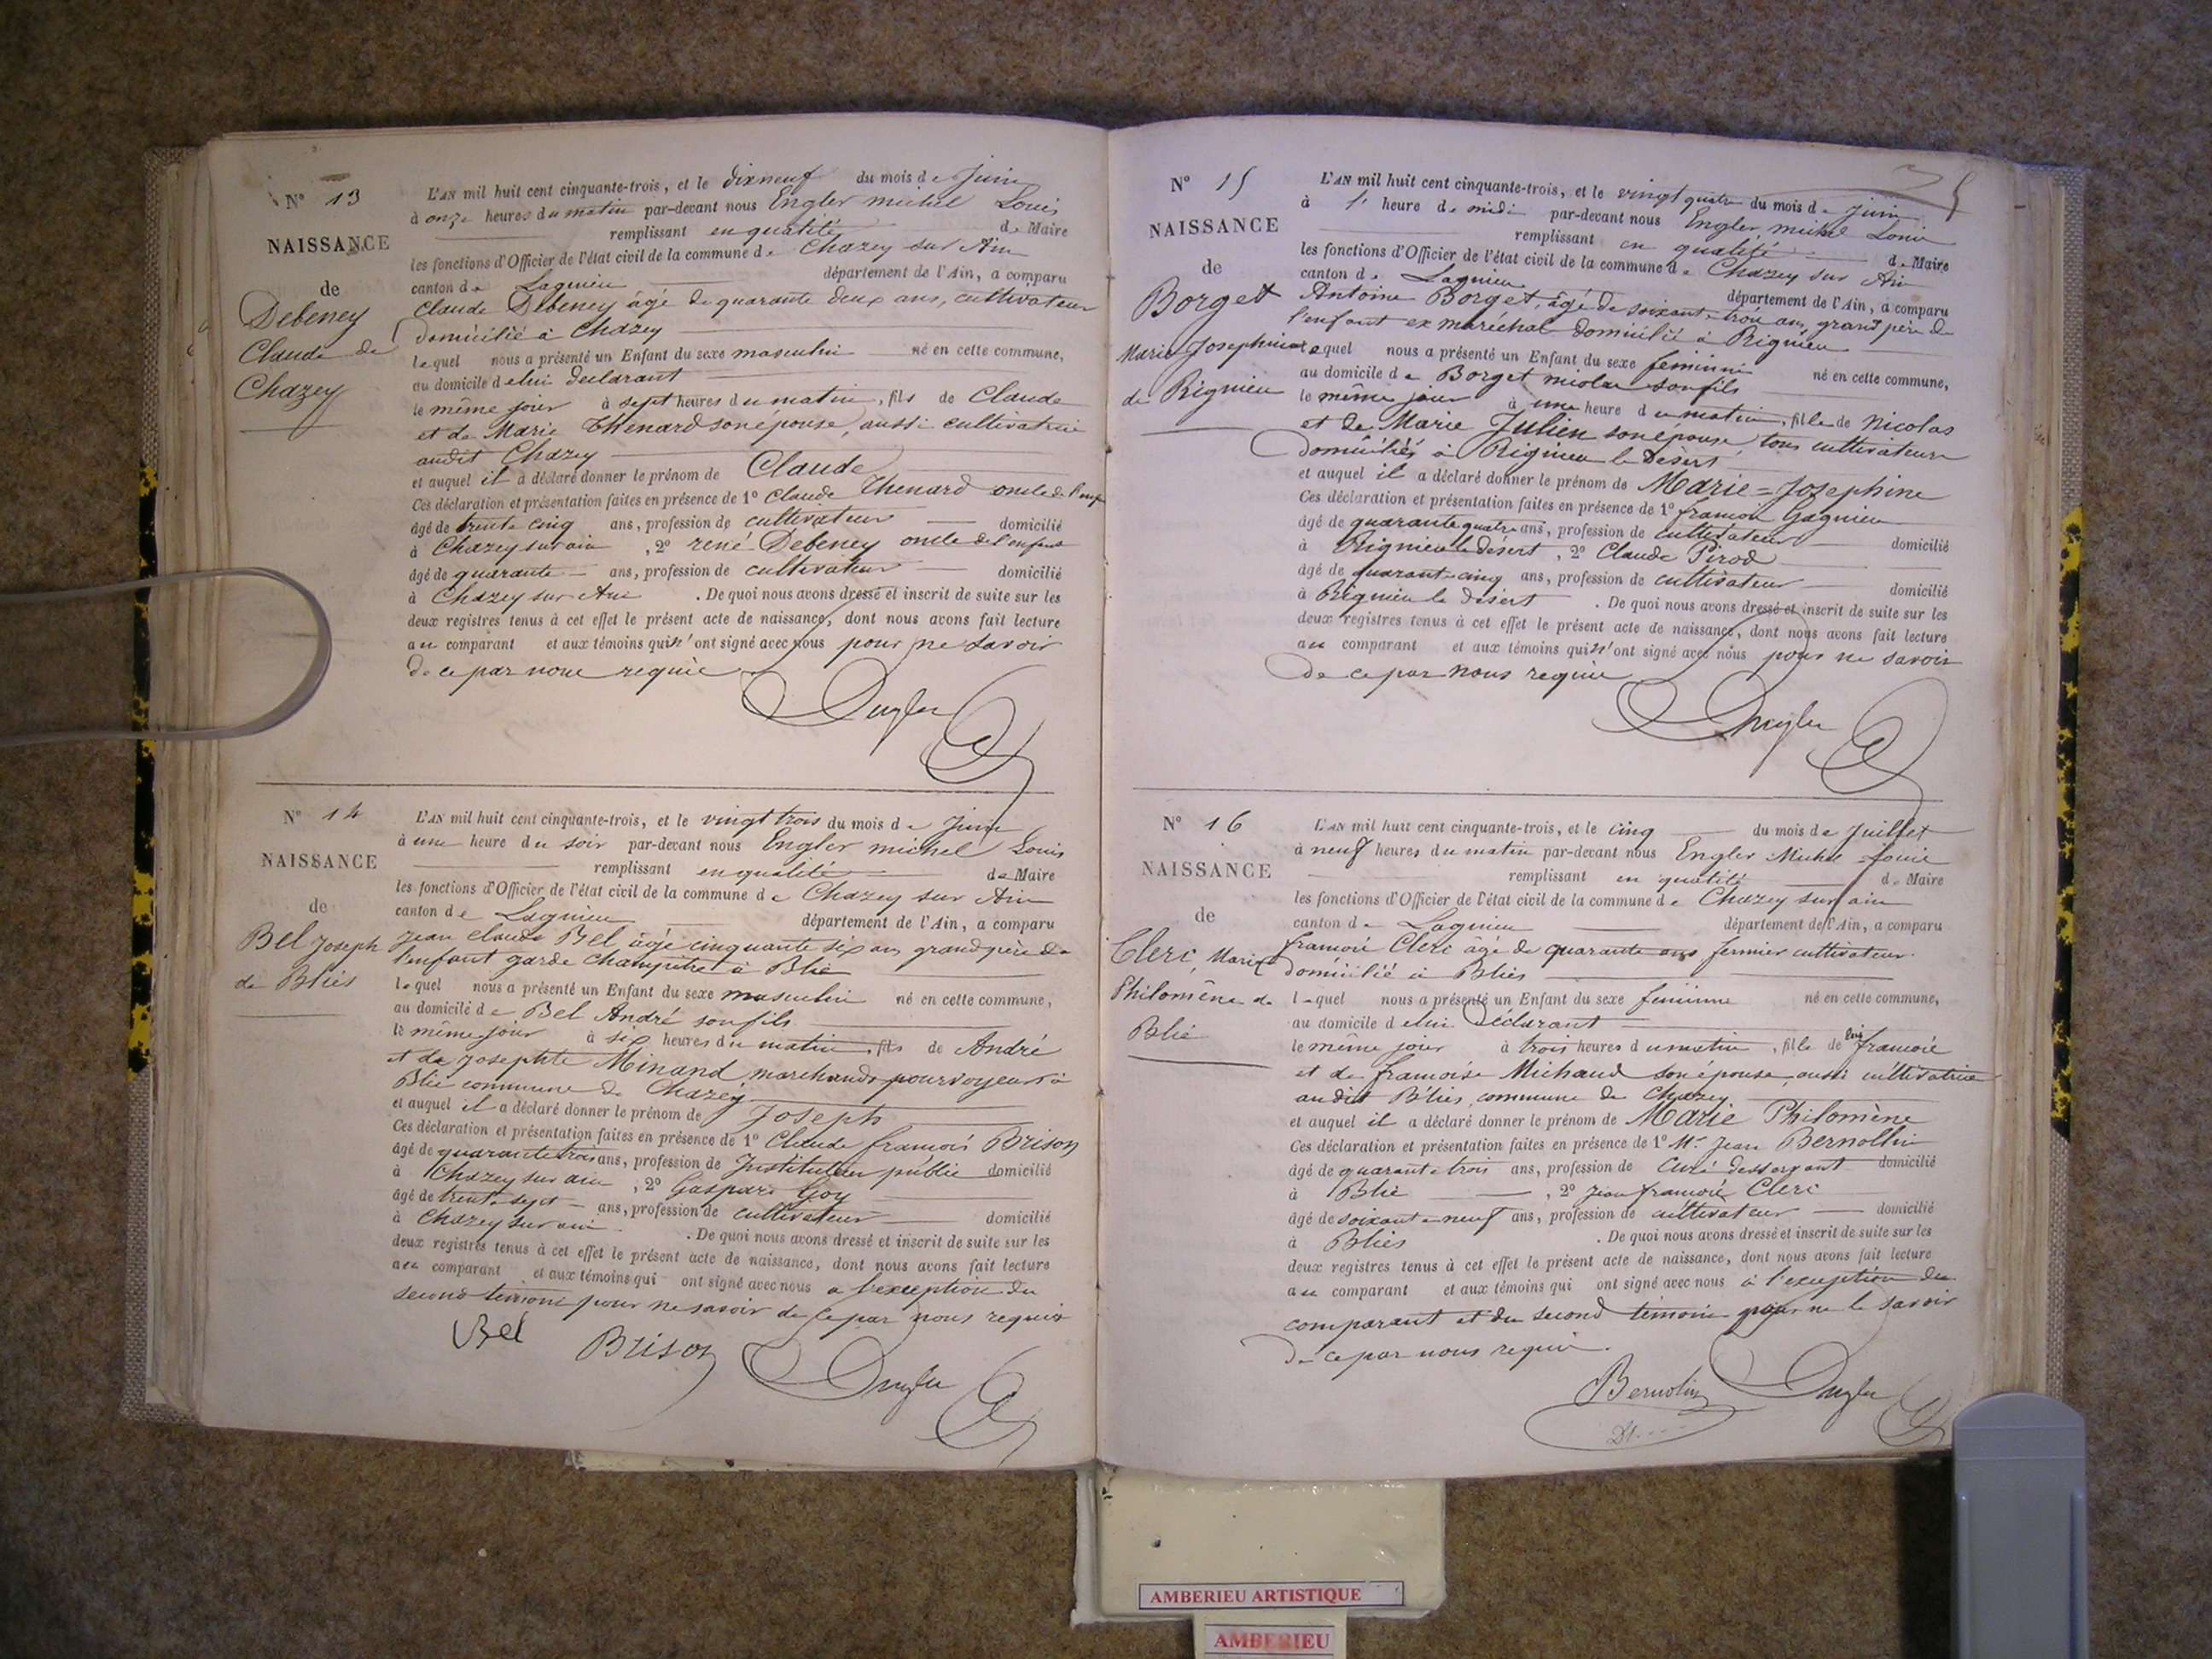 N° 13
NAISSANCE
de
Debeney
Claude de
Chazey
L'AN mil huit cent cinquante-trois, et le dix neuf du mois de Juin
à onze heures du matin par-devant nous Engler michel Louis
remplissant en qualité de Maire
les fonctions d'Officier de l'état civil de la commune de Chazey sur Ain
canton de Lagnieu département de l'Ain, a comparu
Claude Debeney âgé de quarante deux ans, cultivateur
domicilié à Chazey
lequel nous a présenté un Enfant du sexe masculin né en cette commune,
au domicile de lui déclarant
le même jour à sept heures du matin, fils de Claude
et de Marie Thenard son épouse, aussi cultivatrice
audit Chazey
et auquel il a déclaré donner le prénom de Claude
Ces déclaration et présentation faites en présence de 1° Claude Thenard oncle de l'enfant
âgé de trente cinq ans, profession de cultivateur domicilié
à Chazey sur ain, 2° rené Debeney oncle de l'enfant
âgé de quarante ans, profession de cultivateur domicilié
à Chazey sur Ain. De quoi nous avons dressé et inscrit de suite sur les
deux registres tenus à cet effet le présent acte de naissance, dont nous avons fait lecture
au comparant et aux témoins qui n'ont signé avec nous pour ne savoir
de ce par nous requis
Engler
N° 14
NAISSANCE
de
Bel Joseph
de Bliés
L'AN mil huit cent cinquante-trois, et le vingt trois du mois de Juin
à une heure du soir par-devant nous Engler michel Louis
remplissant en qualité de Maire
les fonctions d'Officier de l'état civil de la commune de Chazey sur Ain
canton de Lagnieu département de l'Ain, a comparu
Jean claude Bel, âgé cinquante six ans grand père de
l'enfant garde champêtre à Blié
lequel nous a présenté un Enfant du sexe masculin né en cette commune,
au domicile de Bel André son fils
le même jour à six heures du matin, fils de André
et de Josephte Minand marchands pourvoyeurs à
Blié commune de Chazey
et auquel il a déclaré donner le prénom de Joseph
Ces déclaration et présentation faites en présence de 1° Claude françois Brison
âgé de quarante trois ans, profession de Instituteur public domicilié
à Chazey sur ain, 2° Gaspard Goy
âgé de trente sept ans, profession de cultivateur domicilié
à Chazey sur ain. De quoi nous avons dressé et inscrit de suite sur les
deux registres tenus à cet effet le présent acte de naissance, dont nous avons fait lecture
au comparant et aux témoins qui ont signé avec nous a l'exception du
second témoins pour ne savoir de ce par nous requis
Bel Brison Engler
N° 15
NAISSANCE
de
Borget
Marie Josephine
de Rignieu
L'AN mil huit cent cinquante-trois, et le vingt quatre du mois de juin
à l' heure de midi par-devant nous Engler, michel Louis
remplissant en qualité de Maire
les fonctions d'Officier de l'état civil de la commune de Chazey sur Ain
canton de Lagnieu département de l'Ain, a comparu
Antoine Borget, âgé de soixante trois ans, grand père de
l'enfant ex maréchal domicilié à Rignieu
lequel nous a présenté un Enfant du sexe féminin né en cette commune,
au domicile de Borget nicolas son fils
le même jour à une heure du matin, fille de Nicolas
et de Marie Julien son épouse, tous cultivateurs
domiciliés à Rignieu le Désert
et auquel il a déclaré donner le prénom de Marie=Josephine
Ces déclaration et présentation faites en présence de 1° françois Gagnieu
âgé de quarante quatre ans, profession de cultivateur domicilié
à Rignieu le désert, 2° Claude Pirod
âgé de quarante cinq ans, profession de cultivateur domicilié
à Rignieu le désert. De quoi nous avons dressé et inscrit de suite sur les
deux registres tenus à cet effet le présent acte de naissance, dont nous avons fait lecture
au comparant et aux témoins qui n'ont signé avec nous pour ne savoir
de ce par nous requis
Engler
N° 16
NAISSANCE
de
Clerc, Marie
Philomène de
Blié
L'AN mil huit cent cinquante-trois, et le cinq du mois de Juillet
à neuf heures du matin par-devant nous Engler Michel Louis
remplissant en qualité de Maire
les fonctions d'Officier de l'état civil de la commune de Chazey sur ain
canton de Lagnieu département de l'Ain, a comparu
françois Clerc âgé de quarante ans fermier cultivateur
domicilié à Bliés
lequel nous a présenté un Enfant du sexe féminine né en cette commune,
au domicile de lui Déclarant
le même jour à trois heures du matin, fille de lui françois
et de françoise Michaud son épouse, aussi cultivatrice
audit Bliés, commune de Chazey
et auquel il a déclaré donner le prénom de Marie Philomène
Ces déclaration et présentation faites en présence de 1° Mr Jean Bernollin
âgé de quarante trois ans, profession de Curé desservant domicilié
à Blié, 2° Jean françois Clerc
âgé de soixante neuf ans, profession de cultivateur domicilié
à Bliés. De quoi nous avons dressé et inscrit de suite sur les
deux registres tenus à cet effet le présent acte de naissance, dont nous avons fait lecture
au comparant et aux témoins qui ont signé avec nous à l'exception du
comparant et du second témoin pour ne le savoir
de ce par nous requis.
Bernolin Engler
AMBERIEU ARTISTIQUE
AMBERIEU